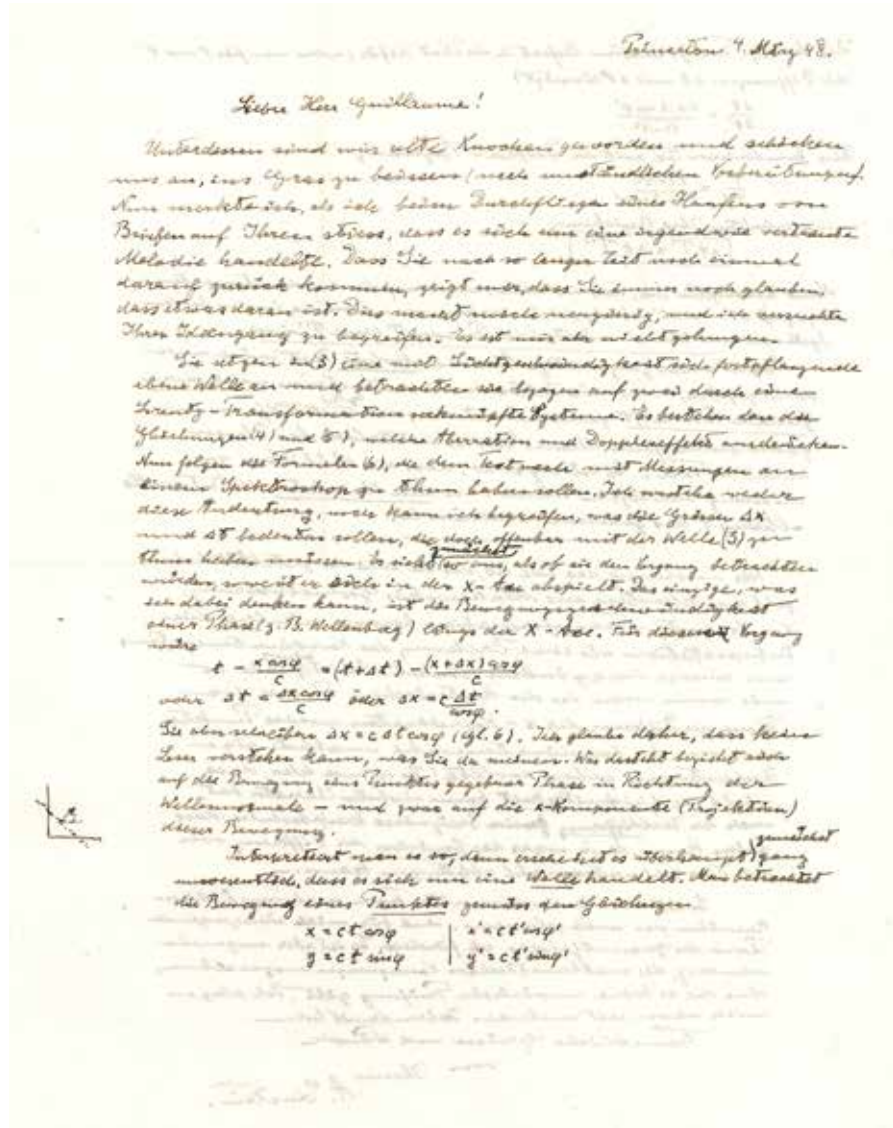 Princeton 4. März 48.
Lieber Herr Guillaume!
Unterdessen sind wir alte Knochen geworden und schicken
uns an, ins Gras zu beissen (nach umständlichen Vorbereitungen).
Nun merkte ich, als ich beim Durchpflügen eines Haufens von
Briefen auf Ihren stiess, dass es sich um eine irgendwie vertraute
Melodie handelte. Dass Sie nach so langer Zeit noch einmal
darauf zurück kommen, zeigt mir, dass Sie immer noch glauben,
dass etwas daran ist. Dies macht mich neugierig, und ich versuchte
Ihren Ideengang zu begreifen. Es ist mir aber nicht gelungen.
Sie setzen in (3) eine mit Lichtgeschwindigkeit sich fortpflanzende
ebene Welle an und betrachten sie bezogen auf zwei durch eine
Lorentz-Transformation verknüpfte Systeme. Es bestehen dann die
Gleichungen (4) und (5), welche Aberration und Dopplereffekt ausdrücken.
Nun folgen die Formeln (6), die dem Text nach mit Messungen an
einem Spektroskop zu thun haben sollen. Ich verstehe weder
diese Andeutung, noch kann ich begreifen, was die Grössen Δx
und Δt bedeuten sollen, die doch offenbar mit der Welle (3) zu
thun haben müssen. Es sieht zunächst so aus, als ob sie den Vorgang betrachten
würden, soweit er sich in der x-Axe abspielt. Das einzige, was
ich dabei denken kann, ist die Bewegungsgeschwindigkeit
einer Phase (z. B. Wellenberg) längs der X-Axe. Für diesen Vorgang
wäre
t - x cosφ / c = (t+Δt) - (x+Δx) cosφ / c
oder Δt = Δx cosφ / c oder Δx = c Δt / cosφ.
Sie aber schreiben Δx = c Δt cosφ (gl. 6). Ich glaube daher, dass kein
Leser verstehen kann, was Sie da meinen. Was dasteht bezieht sich
auf die Bewegung eines Punktes gegebener Phase in Richtung der
Wellennormale – und zwar auf die x-Komponente (Projektion)
dieser Bewegung.
Interpretiert man es so, dann erscheint es überhaupt zunächst ganz
unwesentlich, dass es sich um eine Welle handelt. Man betrachtet
die Bewegung eines Punktes gemäss den Gleichungen
x = ct cosφ | x' = ct' cosφ'
y = ct sinφ | y' = ct' sinφ'